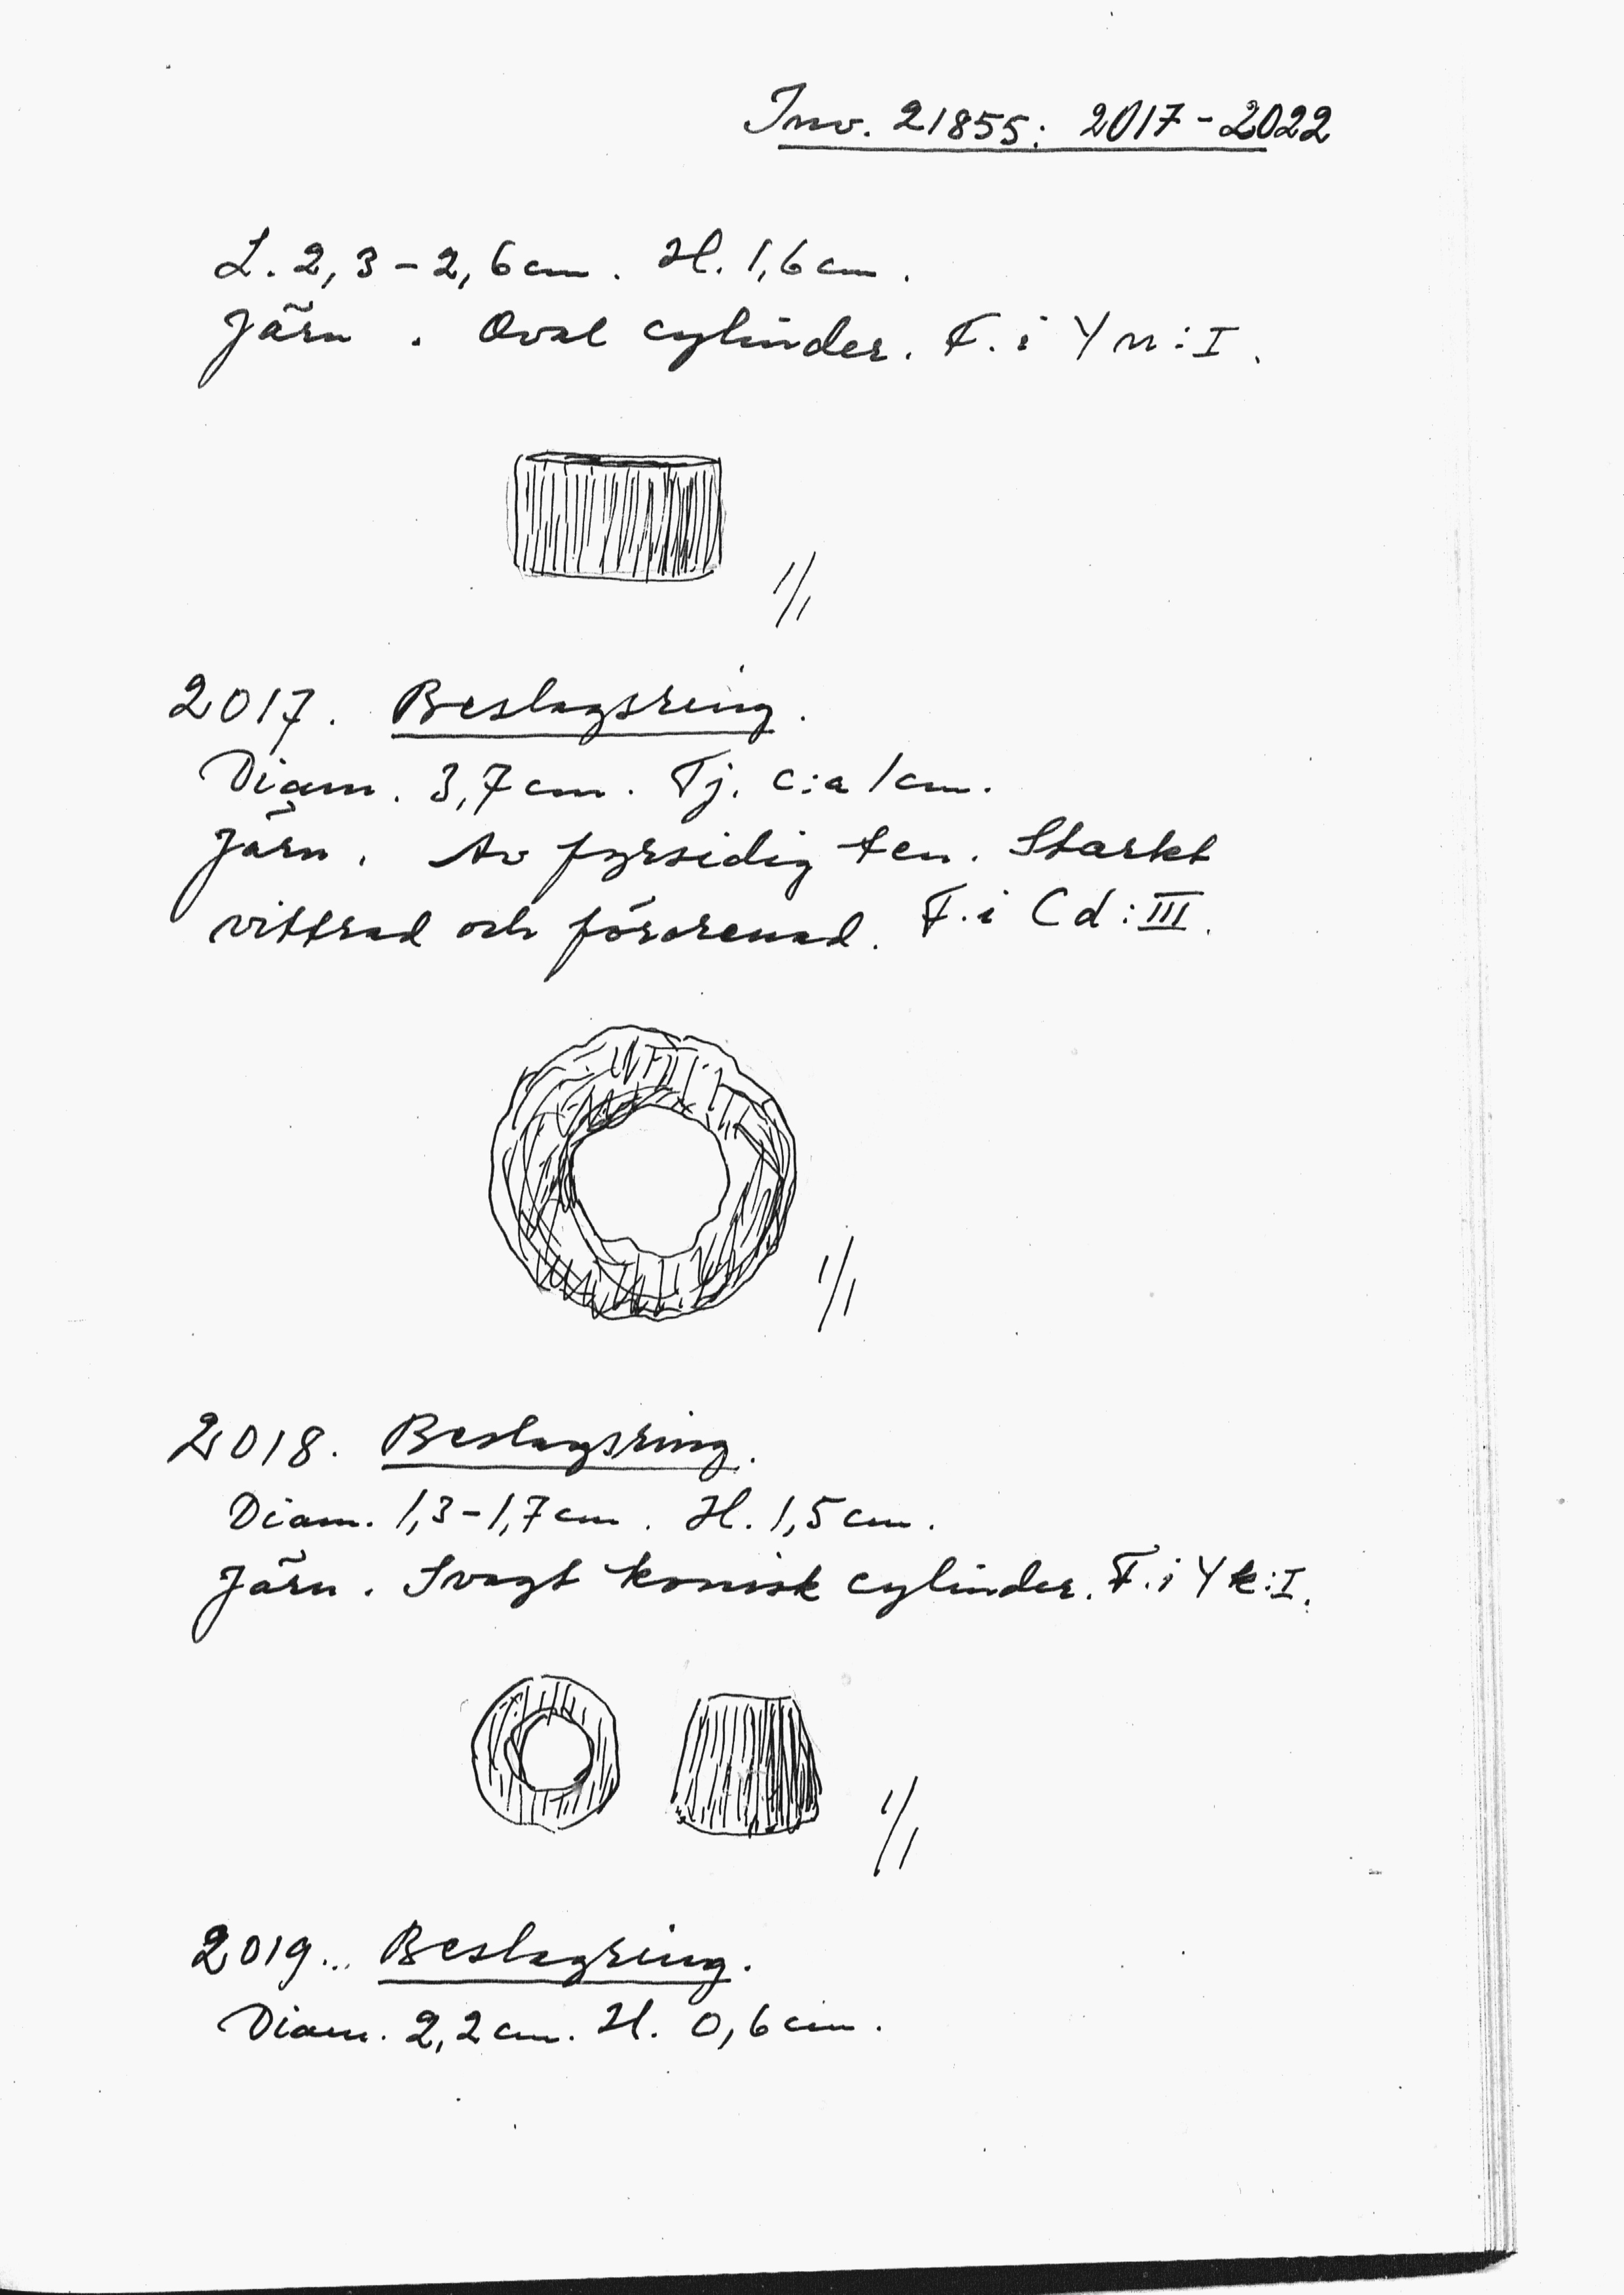 Inv. 21855: 2017-2022
L. 2,3-2,6cm. H. 1,6cm.
Järn. Oval cylinder. F. i Yn:I.
1/1
2017. Beslagsring.
Diam. 3,7cm. Tj. c:a 1cm.
Järn. Av fyrsidig ten. Starkt
vittrad och förorenad. F. i Cd:III.
1/1
2018. Beslagsring.
Diam. 1,3-1,7cm. H. 1,5cm.
Järn. Svagt konisk cylinder. F. i Yk:I.
1/1
2019. Beslagring.
Diam. 2,2cm. H. 0,6cm.